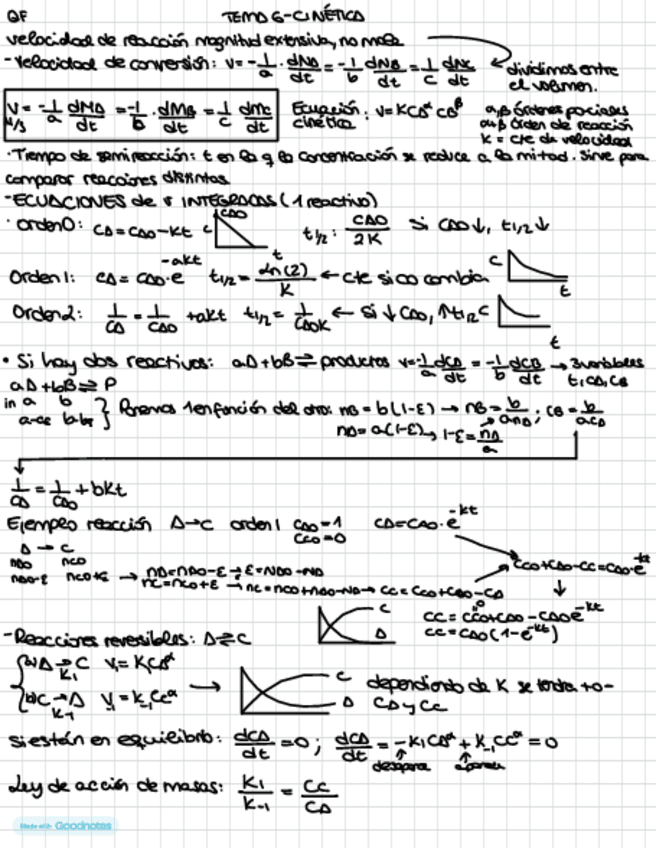 QF TEMA 6-CINÉTICA
velocidad de reacción magnitud extensiva, no molar
- Velocidad de conversión: v = -1/a · dNA/dt = -1/b dNB/dt = 1/c dNc/dt dividimos entre el volumen.
v = -1/a dMA/dt = -1/b · dMB/dt = 1/c dMc/dt Ecuación cinética: v = KCA^α CB^β α,β órdenes parciales
M/s α+β órden de reacción
K = cte de velocidad
· Tiempo de semireacción: t en la q la concentración se reduce a la mitad. Sirve para
comparar reacciones distintas
- ECUACIONES de v INTEGRADAS (1 reactivo)
· orden 0: CA = CAO - Kt C CAO t t1/2: CAO/2K Si CAO↓, t1/2↓
Orden 1: CA = CAO · e^-akt t1/2 = Ln(2)/K ← cte si co cambia C t
Orden 2: 1/CA = 1/CAO + akt t1/2 = 1/CAOK ← Si ↓CAO, ↑t1/2 C t
• Si hay dos reactivos: aA+bB ⇌ productos v = -1/a dCA/dt = -1/b dCB/dt → 3 variables
aA+bB ⇌ P t, CA, CB
in a b
a-aε b-bε } Ponemos 1 en función del otro: nB = b(1-ε) → nB = b/a nA ; CB = b/a CA
nA = a(1-ε) → 1-ε = nA/a
1/CA = 1/CAO + bKt
Ejemplo reacción A→C orden 1 CAO = 1 CCO = 0 CA = CAO · e^-kt
A → C
nAO nCO
nAO-ε nCO+ε → nA = nAO - ε → ε = NAO - NA
nC = nCO + ε → nC = nCO + nAO - NA → CC = CCO + CAO - CA
CCO + CAO - CC = CAO · e^-kt
C A
CC = CCO + CAO - CAOe^-kt
CC = CAO(1 - e^-kt)
- Reacciones reversibles: A ⇌ C
A → C K1 V1 = K1CA^α
C → A K-1 V-1 = K-1CC^α
→ C A dependiendo de K se tendrá + o -
CA y CC
si están en equilibrio: dCA/dt = 0 ; dCA/dt = -K1CA^α + K-1CC^α = 0
desaparece aparece
Ley de acción de masas: K1/K-1 = CC/CA
Made with Goodnotes